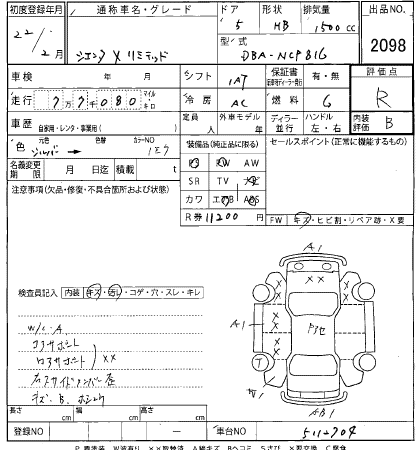 初度登録年月 通称車名・グレード ドア 形状 排気量 出品NO.
22/. 2月 シエンタ X リミテッド 5 HB 1500cc 2098
型式 DBA-NCP81G
車検 年 月 シフト IAT 保証書 有・無 評価点
走行 77080 マイル・キロ 冷房 AC 燃料 G R
車歴 自家用・レンタ・事業用( ) 定員 人 外車モデル ディーラー・並行 ハンドル 左・右 内装評価 B
色 元色 シルバー → 色替 カラーNO 1E7 装備品(純正品に限る) セールスポイント(正常に機能するもの)
名義変更期限 月 日迄 積載 t PS PW AW
注意事項(欠品・修復・不具合箇所および状態) SR TV ナビ
カワ エアB ABS
R券 11200 FW キズ・ヒビ割・リペア跡・X要
検査員記入 内装 キズ・汚れ・コゲ・穴・スレ・キレ
W/C・A
コアサポート
ロアサポート XX
キズ・B.
A1
A1
ドアセ
T
W1
AB1
長さ cm 幅 cm 高さ cm
登録NO ― 車台NO 5112704